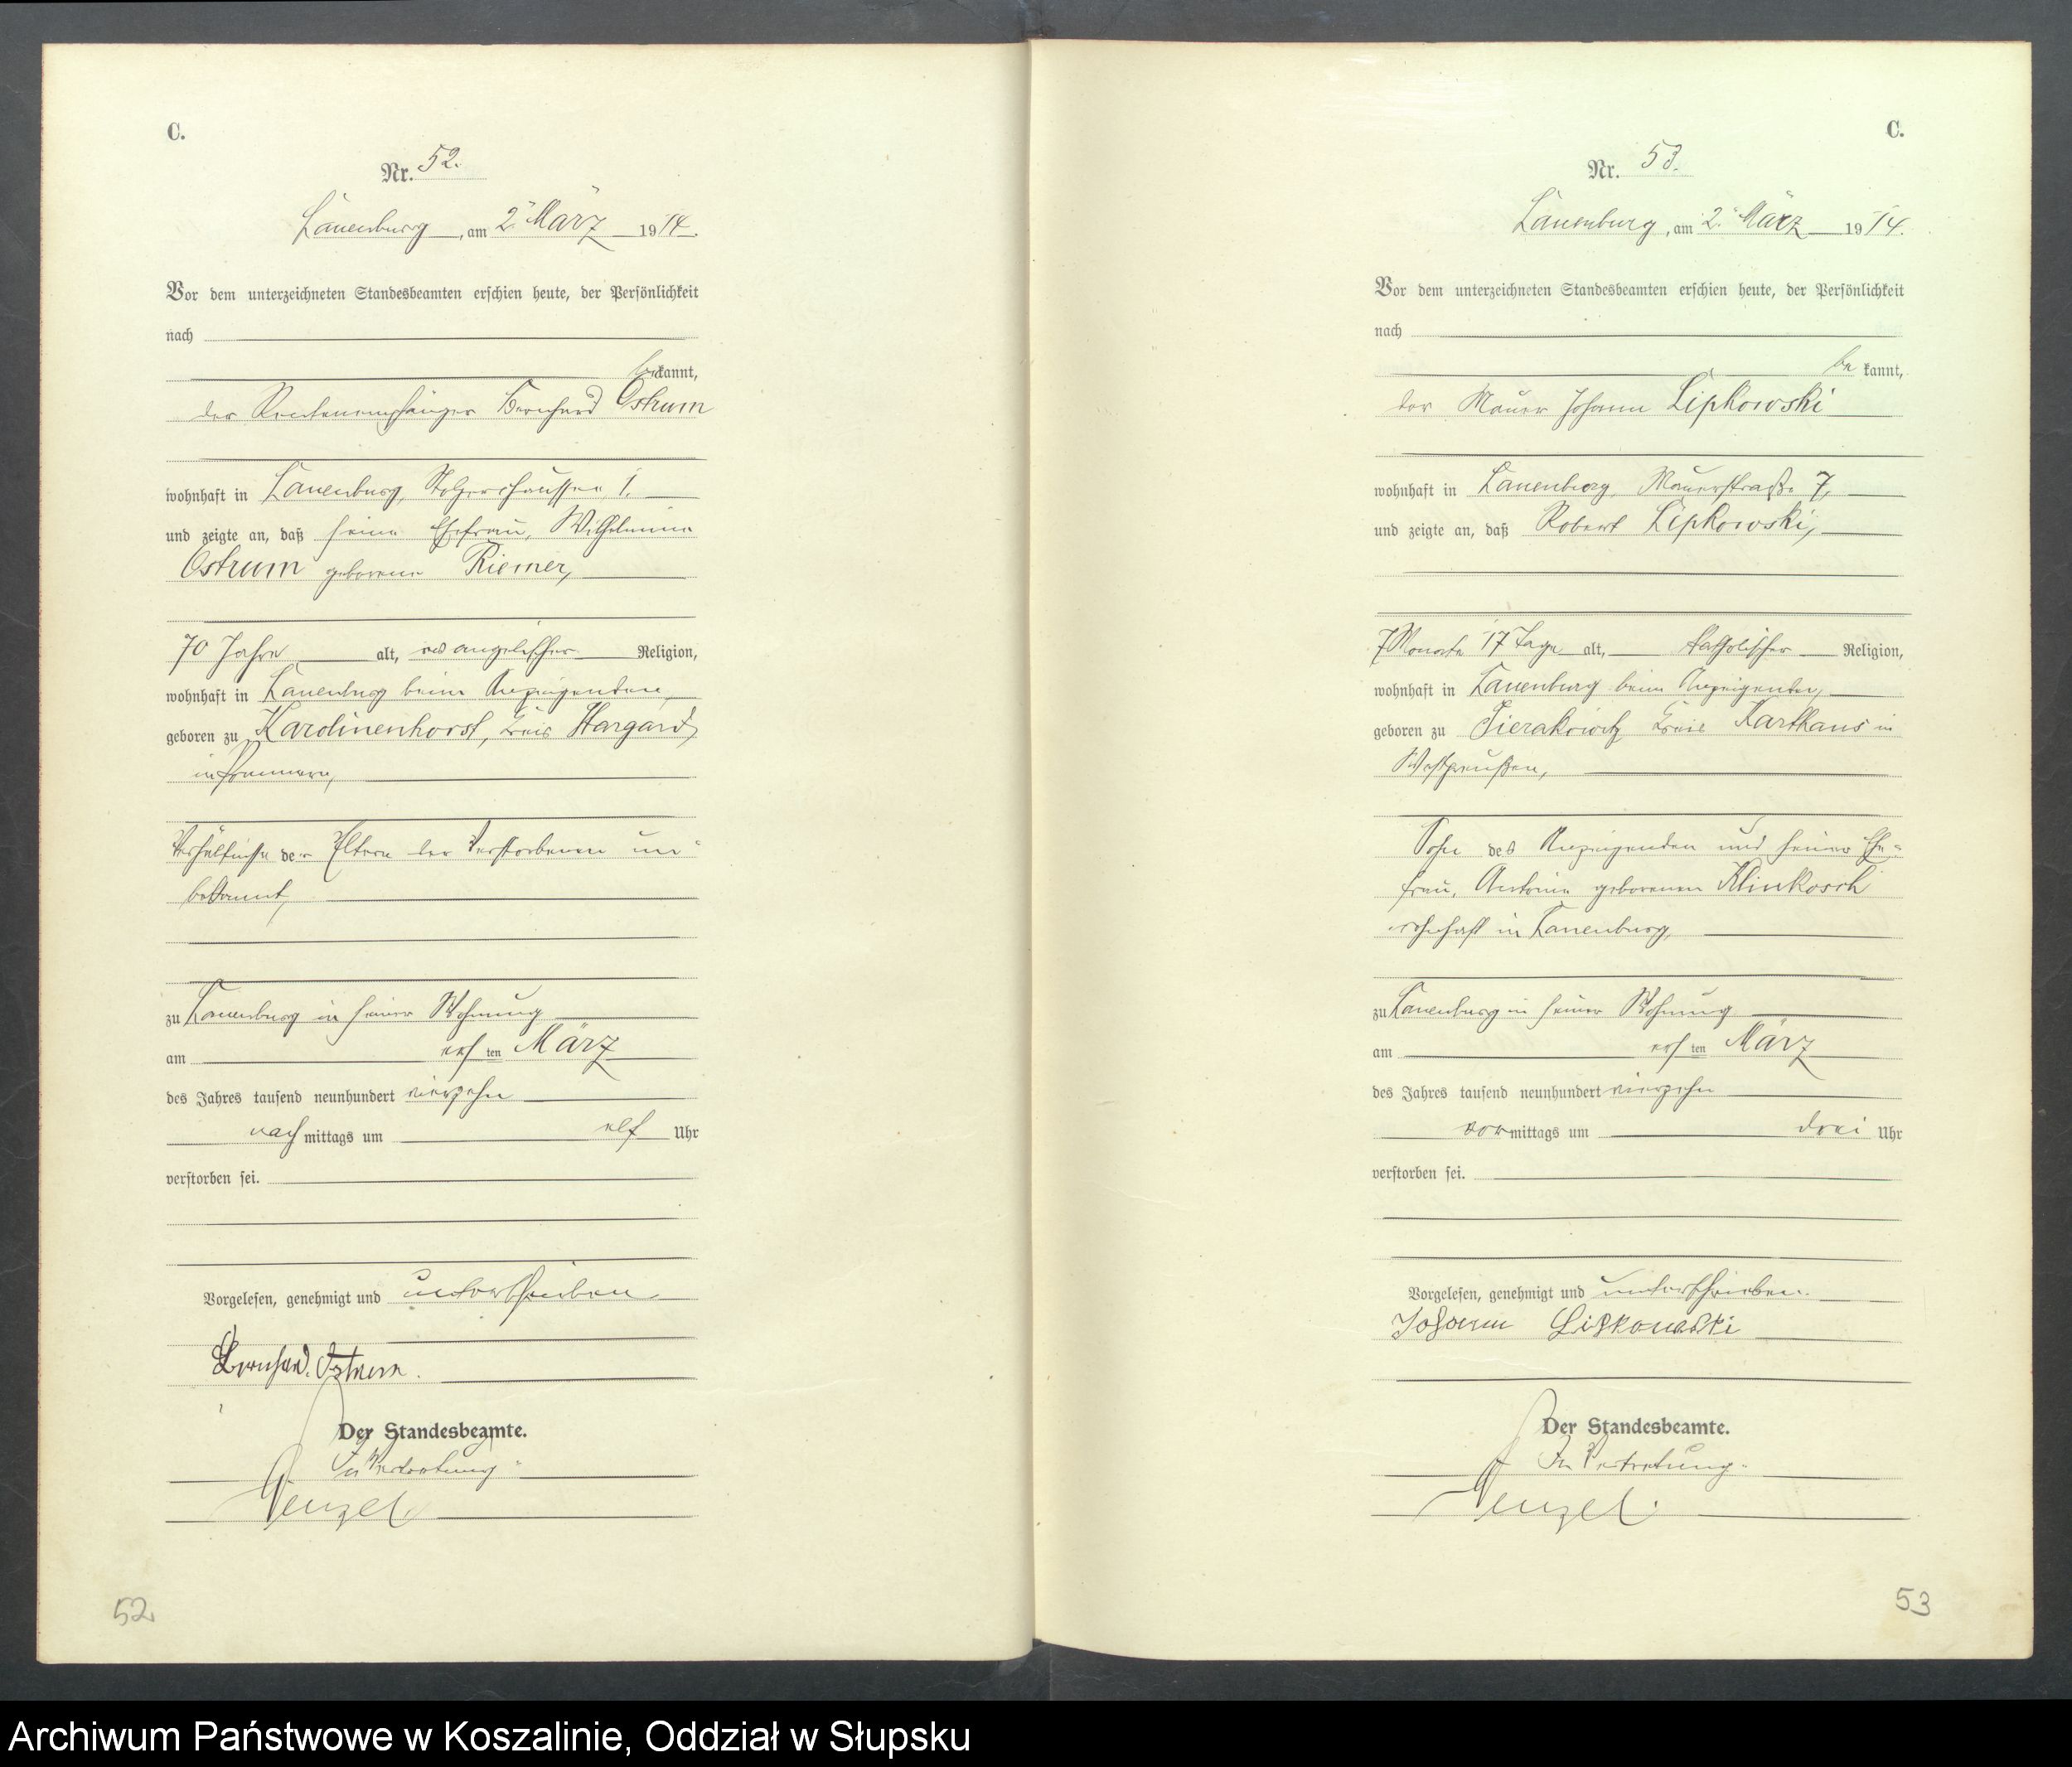 C.
Nr. 52.
Lauenburg, am 2. März 1914.
Vor dem unterzeichneten Standesbeamten erschien heute, der Persönlichkeit
nach
bekannt,
der Rentenempfänger Bernhard Ostrum
wohnhaft in Lauenburg, Stolperchaussee 1.
und zeigte an, daß seine Ehefrau, Wilhelmine
Ostrum geborene Riemer,
70 Jahre alt, evangelischer Religion,
wohnhaft in Lauenburg beim Anzeigenden,
geboren zu Karolinenhorst, Kreis Stargard
in Pommern,
Verhältnisse der Eltern der Verstorbenen un-
bekannt,
zu Lauenburg in seiner Wohnung
am ersten März
des Jahres tausend neunhundert vierzehn
nachmittags um elf Uhr
verstorben sei.
Vorgelesen, genehmigt und unterschrieben.
Bernhard Ostrum.
Der Standesbeamte.
In Vertretung.
Wenzel
52
C.
Nr. 53.
Lauenburg, am 2. März 1914.
Vor dem unterzeichneten Standesbeamten erschien heute, der Persönlichkeit
nach
bekannt,
der Maurer Johann Lipkowski
wohnhaft in Lauenburg, Mauerstraße 7,
und zeigte an, daß Robert Lipkowski,
7 Monate 17 Tage alt, katholischer Religion,
wohnhaft in Lauenburg beim Anzeigenden,
geboren zu Sierakowitz Kreis Karthaus in
Westpreußen,
Sohn des Anzeigenden und seiner Ehe-
frau, geborenen Klinkosch
wohnhaft in Lauenburg,
zu Lauenburg in seiner Wohnung
am ersten März
des Jahres tausend neunhundert vierzehn
vormittags um drei Uhr
verstorben sei.
Vorgelesen, genehmigt und unterschrieben.
Johann Lipkowski
Der Standesbeamte.
In Vertretung.
Wenzel.
53
Archiwum Państwowe w Koszalinie, Oddział w Słupsku